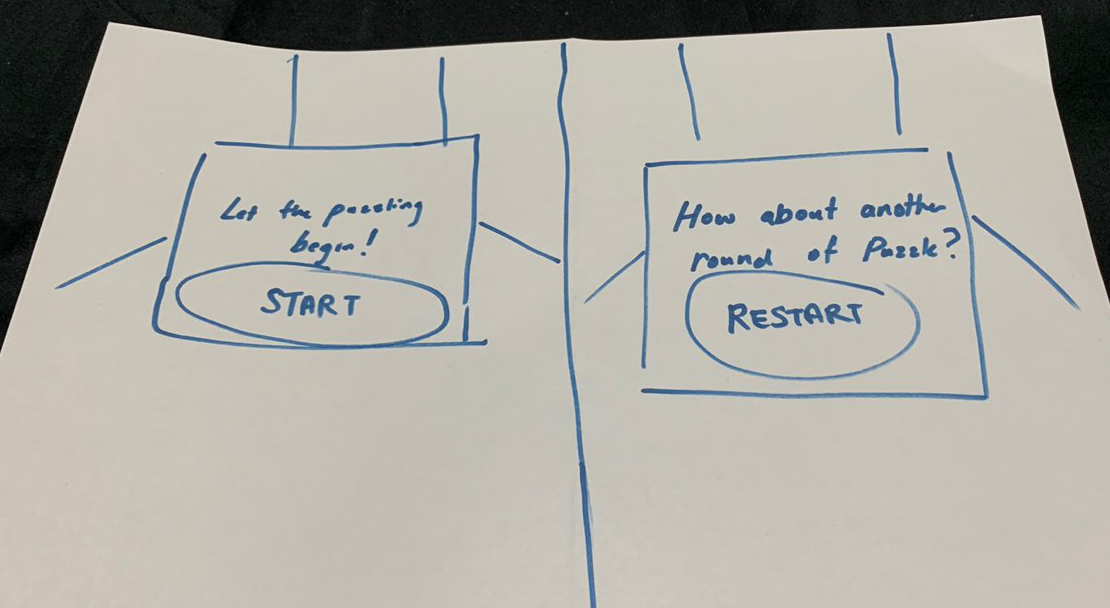 Let the puzzling
begin!
START
How about another
round of Puzzle?
RESTART